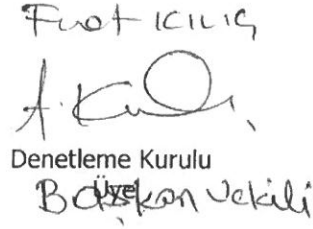 Fuat KILIÇ
Denetleme Kurulu
Üye
Başkan Vekili